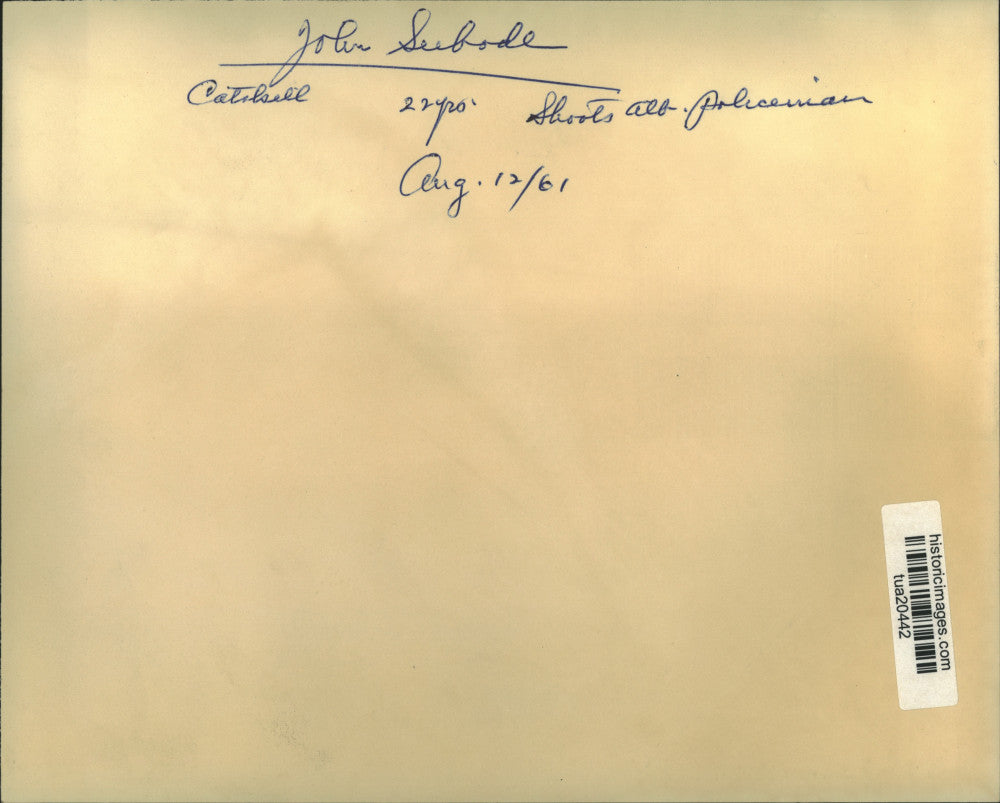 John Seebode
Catskill 22 yrs. Shoots Alb. Policeman
Aug. 12/61
historicimages.com
tua20442